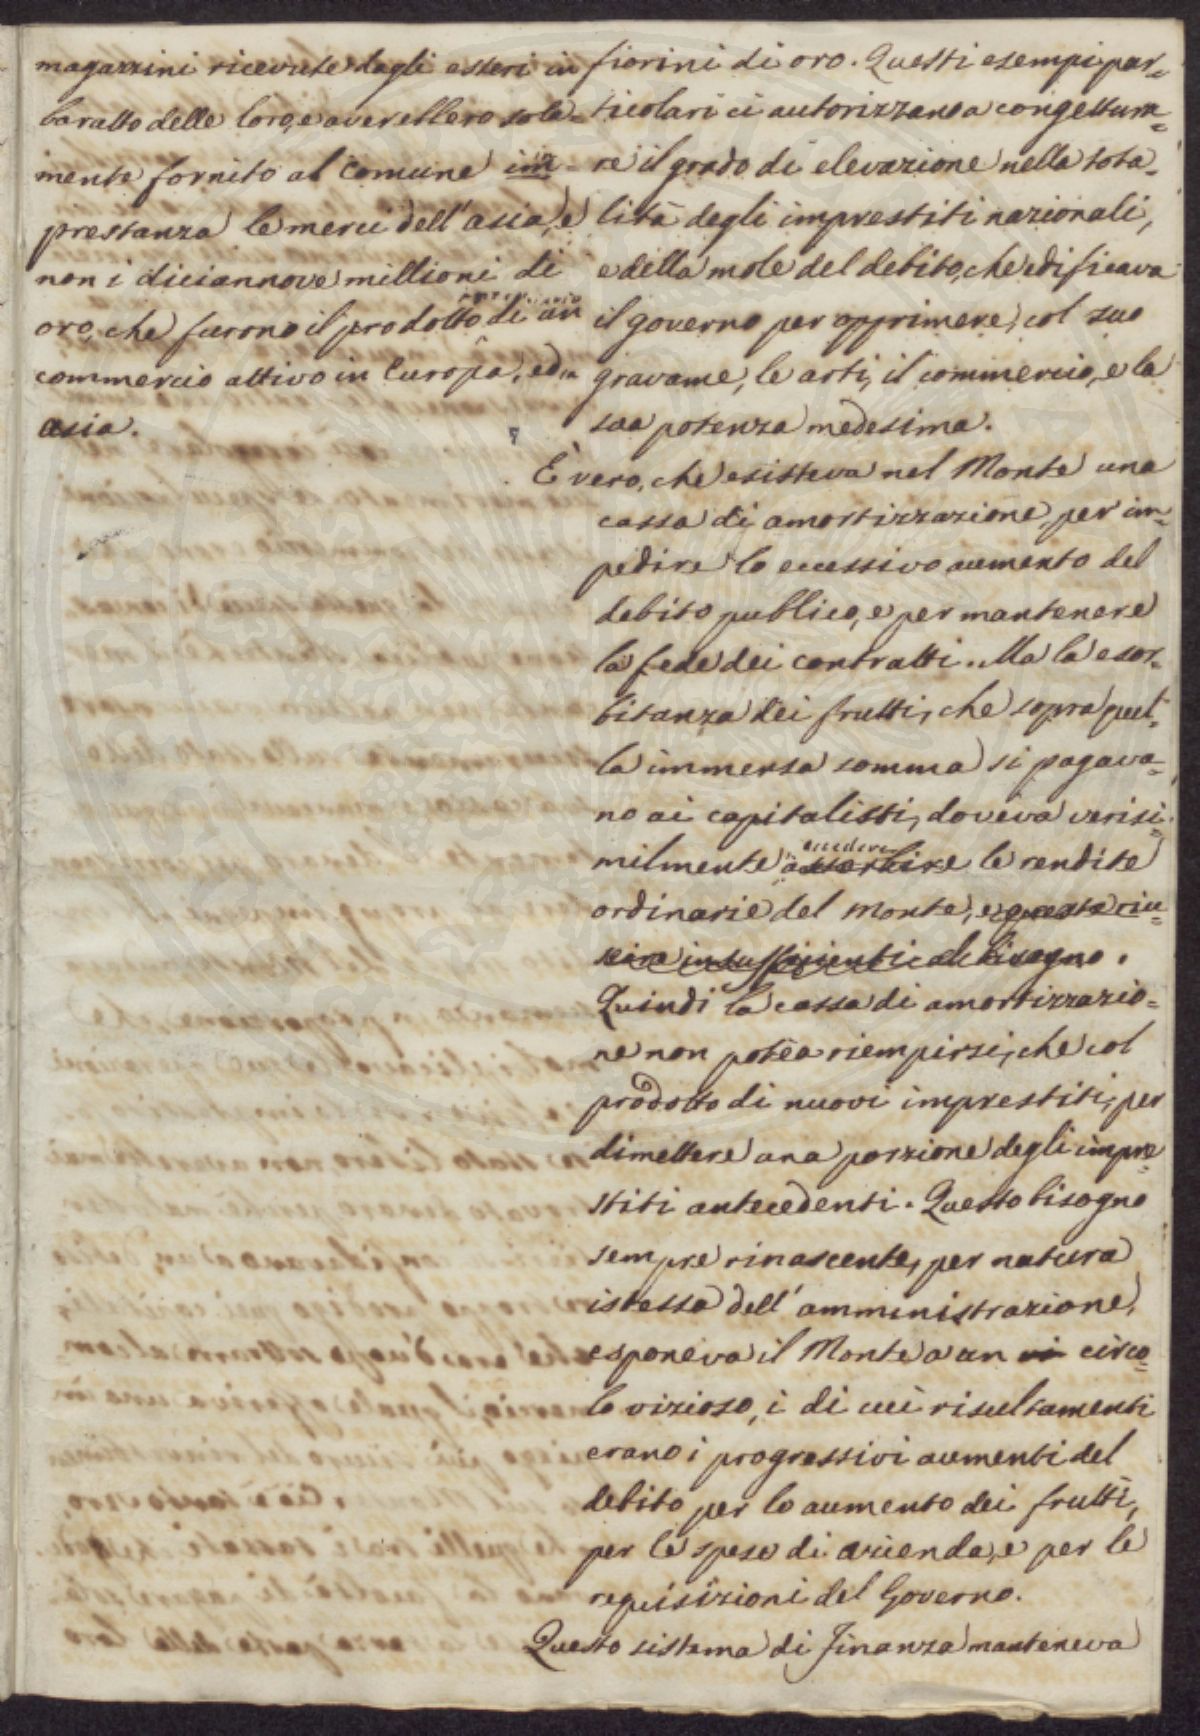 magazzini ricevute dagli esteri in
baratto delle loro, e averebbero sola-
mente fornito al Comune in
prestanza le merci dell'asia, e
non i diciannove millioni di
oro, che furono il prodotto di un
commercio attivo in Europa, ed in
asia.
fiorini di oro. Questi esempi par-
ticolari ci autorizzano a congettura-
re il grado di elevazione nella tota-
lità degli imprestiti nazionali,
e della mole del debito, che edificava
il governo per opprimere, col suo
gravame, le arti, il commercio, e la
sua potenza medesima.
È vero, che esisteva nel Monte una
cassa di amortizzazione, per im-
pedire lo eccessivo aumento del
debito publico, e per mantenere
la fede dei contratti. Ma la esor-
bitanza dei frutti, che sopra quel-
la immensa somma si pagava-
no ai capitalisti, doveva verisi-
eccedere
milmente assorbire le rendite
ordinarie del Monte, e queste riu-
scire insufficienti al bisogno.
Quindi la cassa di amortizzazio-
ne non potea riempirsi, che col
prodotto di nuovi imprestiti, per
dimettere una porzione degli impre-
stiti antecedenti. Questo bisogno
sempre rinascente, per natura
istessa dell'amministrazione,
esponeva il Monte a un vi circo-
lo vizioso, i di cui risultamenti
erano i progressivi aumenti del
debito per lo aumento dei frutti,
per le spese di azienda, e per le
requisizioni del Governo.
Questo sistema di Finanza manteneva